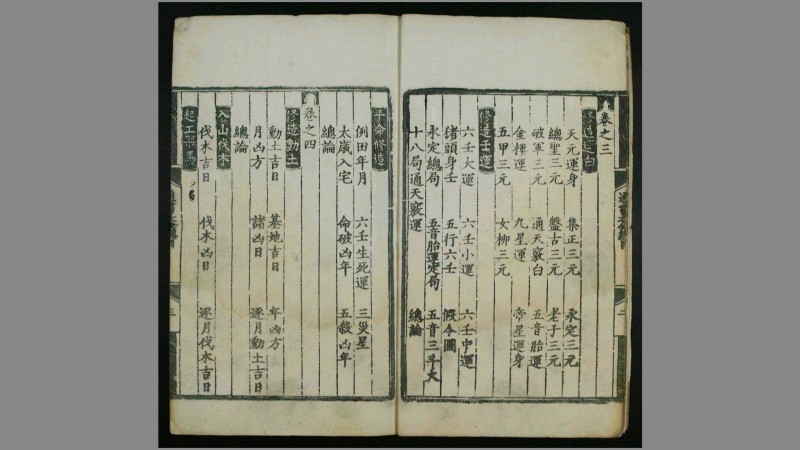 卷之三
修造運白
天元運身 集正三元 永定三元
總聖三元 盤古三元 老子三元
破軍三元 通天竅白 五音胎運
金裡運 九星運 帝星運身
五甲三元 女柳三元
修造壬運
六壬大運 六壬小運 六壬中運
猪頭身壬 五行六壬 假令圖
永定總局 五音胎運定局 五音三斗火
十八局通天竅運 總論
平命修造
例田年月 六壬生死運 三災星
太歲入宅 命破凶年 五殺凶年
總論
卷之四
修造動土
動土吉日 基地吉日 年凶方
月凶方 諸凶日 逐月動土吉日
總論
入山伐木
伐木吉日 伐木凶日 逐月伐木吉日
起工架馬